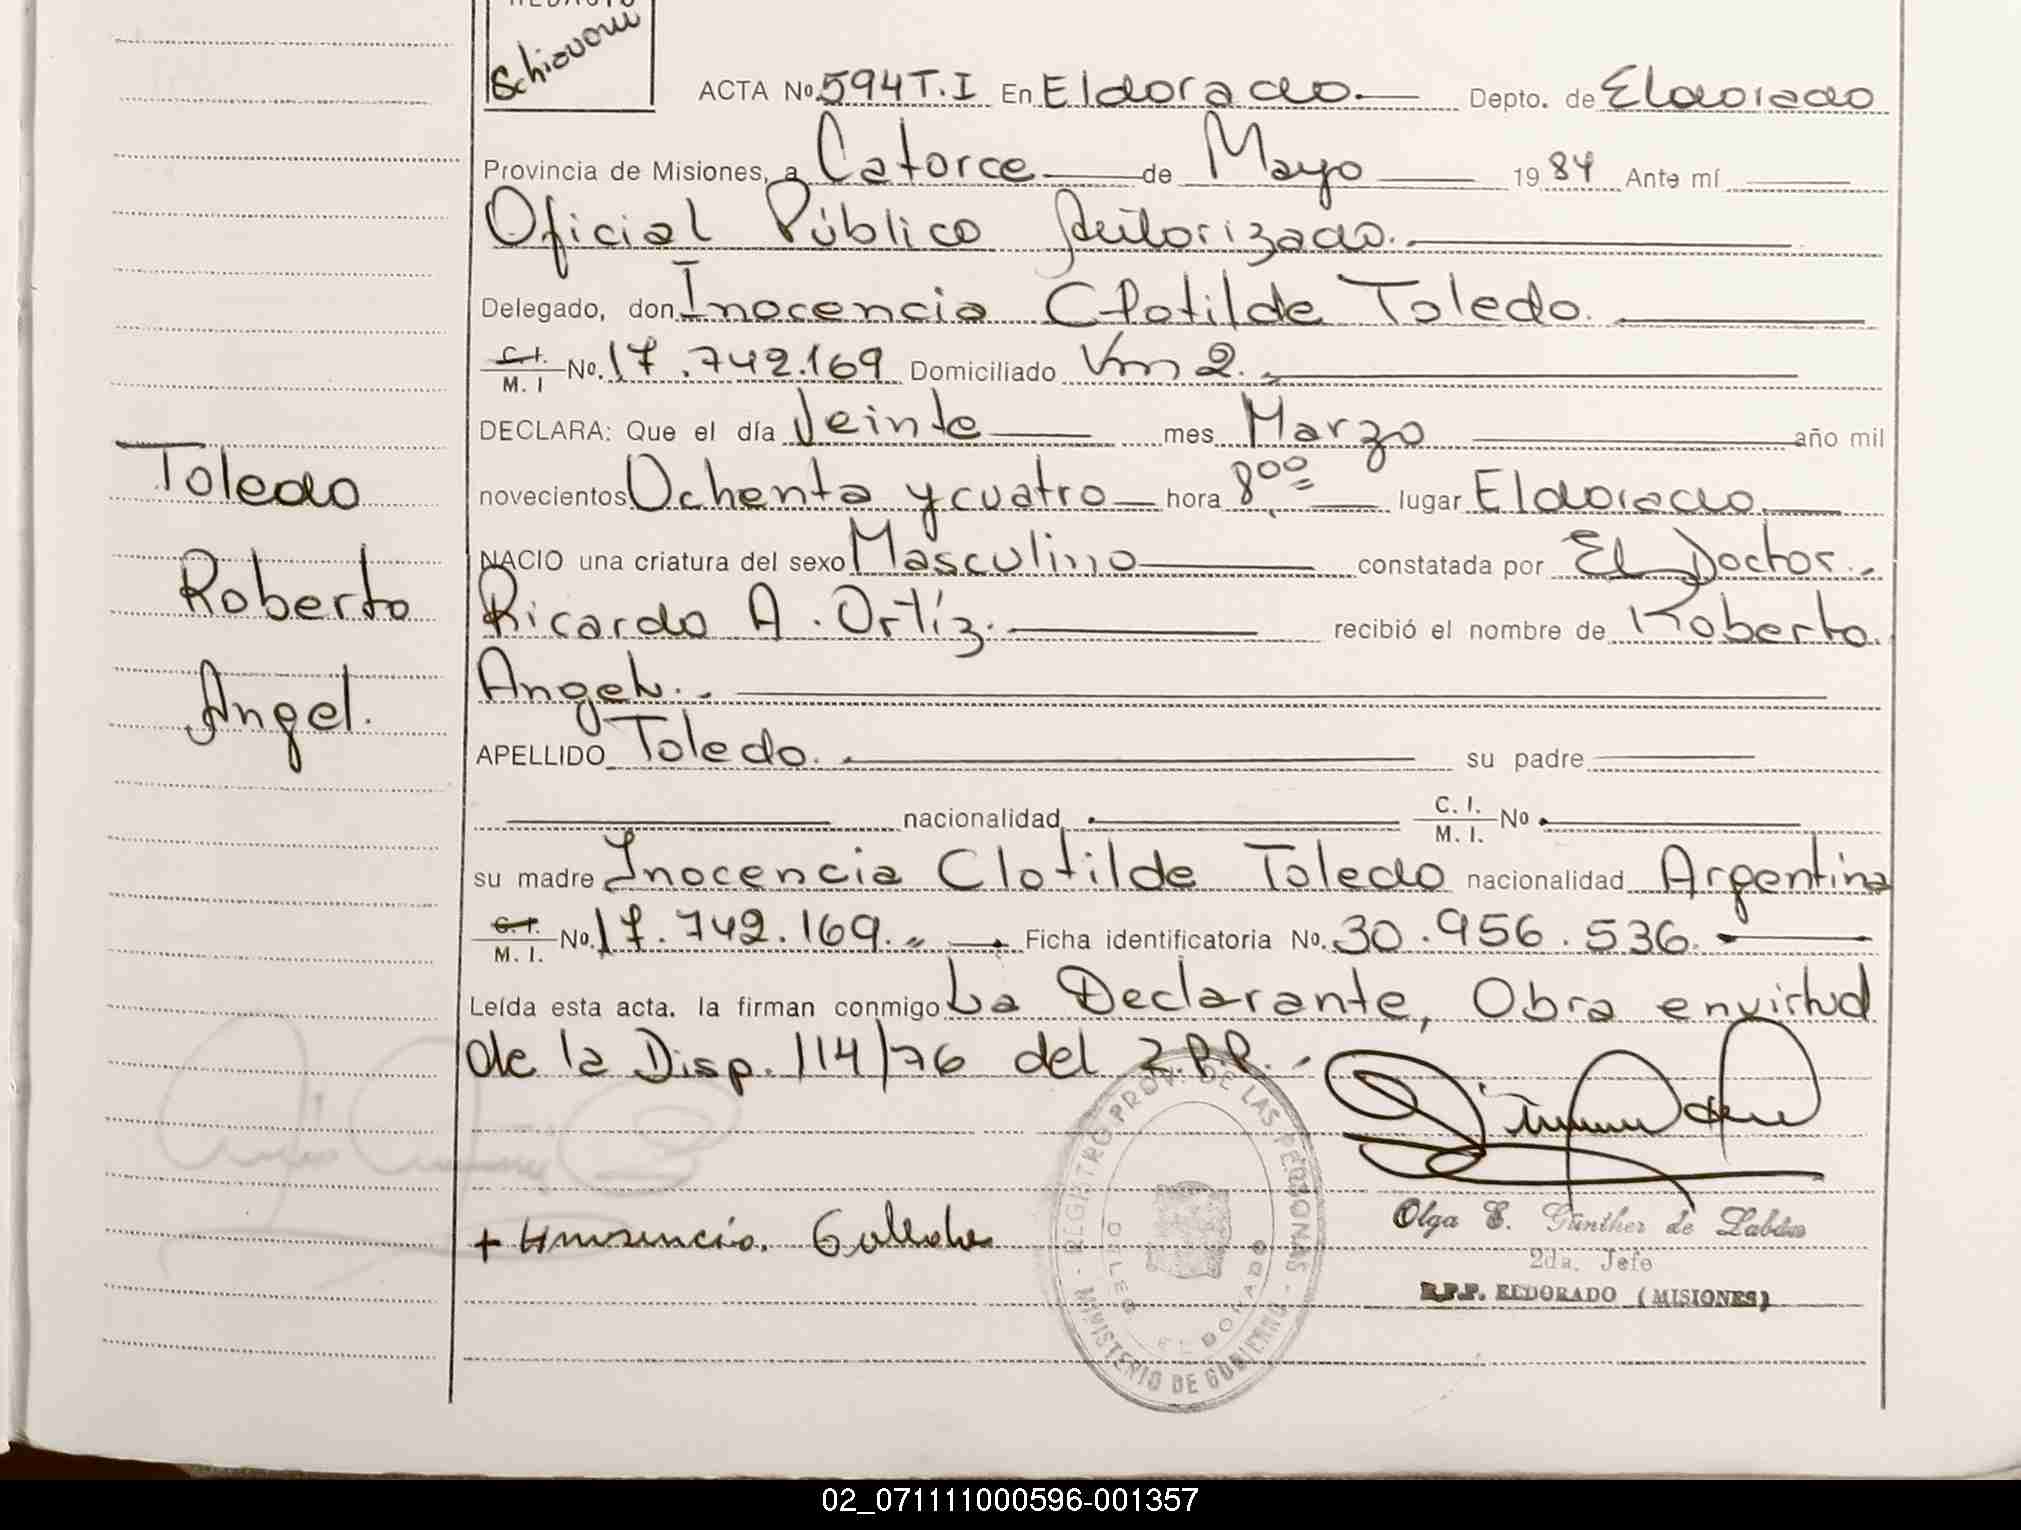 REDACTO
Schiavoni
ACTA Nº 594 T.I En Eldorado. Depto. de Eldorado
Provincia de Misiones, a Catorce de Mayo 1984 Ante mí
Oficial Público Autorizado.
Delegado, don Inocencia Clotilde Toledo.
C. I.
M. I No. 17.742.169 Domiciliado Km 2.
DECLARA: Que el día Veinte mes Marzo año mil
novecientos Ochenta y cuatro hora 8ºº lugar Eldorado
NACIO una criatura del sexo Masculino constatada por El Doctor.
Ricardo A. Ortíz. recibió el nombre de Roberto
Angel.
APELLIDO Toledo. su padre
nacionalidad C. I.
M. I. No
su madre Inocencia Clotilde Toledo nacionalidad Argentina
C. I.
M. I. No. 17.742.169. Ficha identificatoria No. 30.956.536.
Leída esta acta. la firman conmigo La Declarante, Obra envirtud
de la Disp. 114/76 del R.P.P.
Toledo
Roberto
Angel.
REGISTRO PROV. DE LAS PERSONAS
MINISTERIO DE GOBIERNO
DELEG. ELDORADO
Olga E. Günther de
2da. Jefe
R.P.P. ELDORADO (MISIONES)
02_071111000596-001357